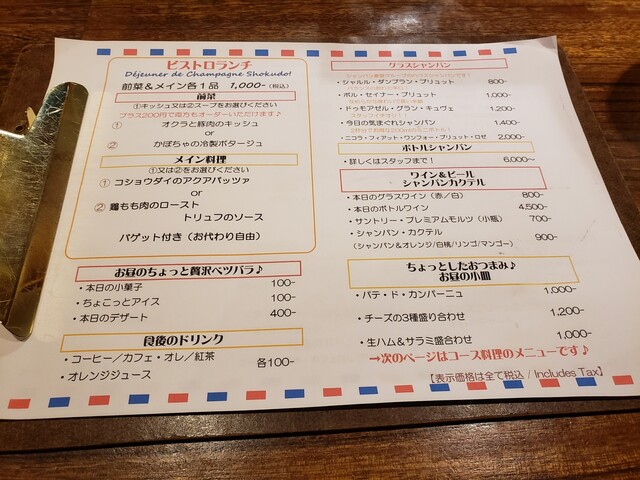 ビストロランチ
Déjeuner de Champagne Shokudo!
前菜&メイン各1品 1,000-(税込)
前菜
①キッシュ又は②スープをお選びください
プラス200円で両方もオーダーいただけます♪
① オクラと豚肉のキッシュ
or
② かぼちゃの冷製ポタージュ
メイン料理
①又は②をお選びください
① コショウダイのアクアパッツァ
or
② 鶏もも肉のロースト
トリュフのソース
バゲット付き(お代わり自由)
お昼のちょっと贅沢ベツバラ♪
・本日の小菓子 100-
・ちょこっとアイス 100-
・本日のデザート 400-
食後のドリンク
・コーヒー/カフェ・オレ/紅茶 各100-
・オレンジジュース
グラスシャンパン
・シャルル・ダンブラン・ブリュット 800-
・ポル・セイナー・ブリュット 1,000-
・ドゥモアゼル・グラン・キュヴェ 1,200-
・今日の気まぐれシャンパン 1,400-
・ニコラ・フィアット・ワンフォー・ブリュット・ロゼ 2,000-
ボトルシャンパン
・詳しくはスタッフまで! 6,000〜
ワイン&ビール
シャンパンカクテル
・本日のグラスワイン(赤/白) 800-
・本日のボトルワイン 4,500-
・サントリー・プレミアムモルツ(小瓶) 700-
・シャンパン・カクテル 900-
(シャンパン&オレンジ/白桃/リンゴ/マンゴー)
ちょっとしたおつまみ♪
お昼の小皿
・パテ・ド・カンパーニュ 1,000-
・チーズの3種盛り合わせ 1,200-
・生ハム&サラミ盛合わせ 1,000-
→次のページはコース料理のメニューです♪
【表示価格は全て税込 / Includes Tax】